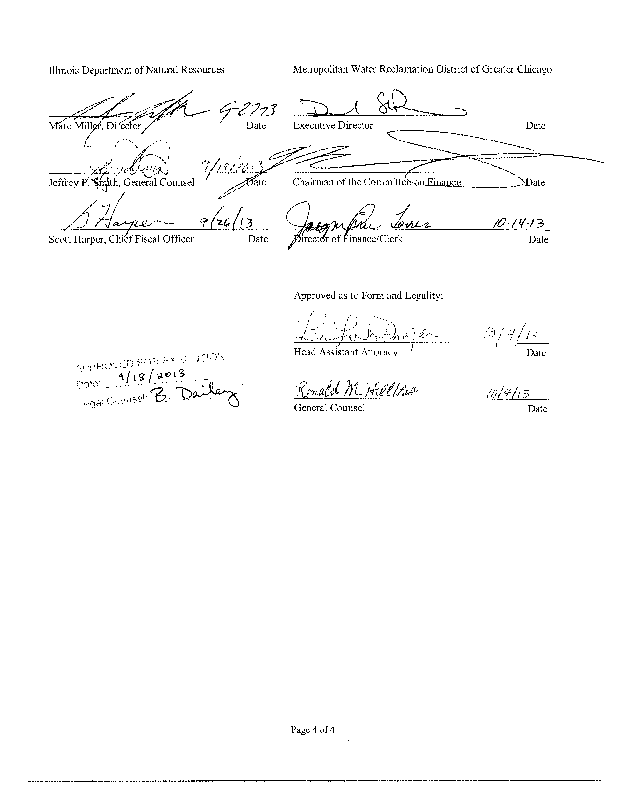 Illinois Department of Natural Resources
Metropolitan Water Reclamation District of Greater Chicago
9-27-13
Marc Miller, Director Date
Executive Director Date
Jeffrey P. Smith, General Counsel Date
Chairman of the Committee on Finance Date
S Harper 9/26/13
Scott Harper, Chief Fiscal Officer Date
Jacqueline Torres 10-14-13
Director of Finance/Clerk Date
Approved as to Form and Legality:
Head Assistant Attorney Date
APPROVED FOR EXECUTION
Date: 9/18/2013
Legal Counsel: B. Dailey
Ronald M. Hill 10/9/13
General Counsel Date
Page 4 of 4